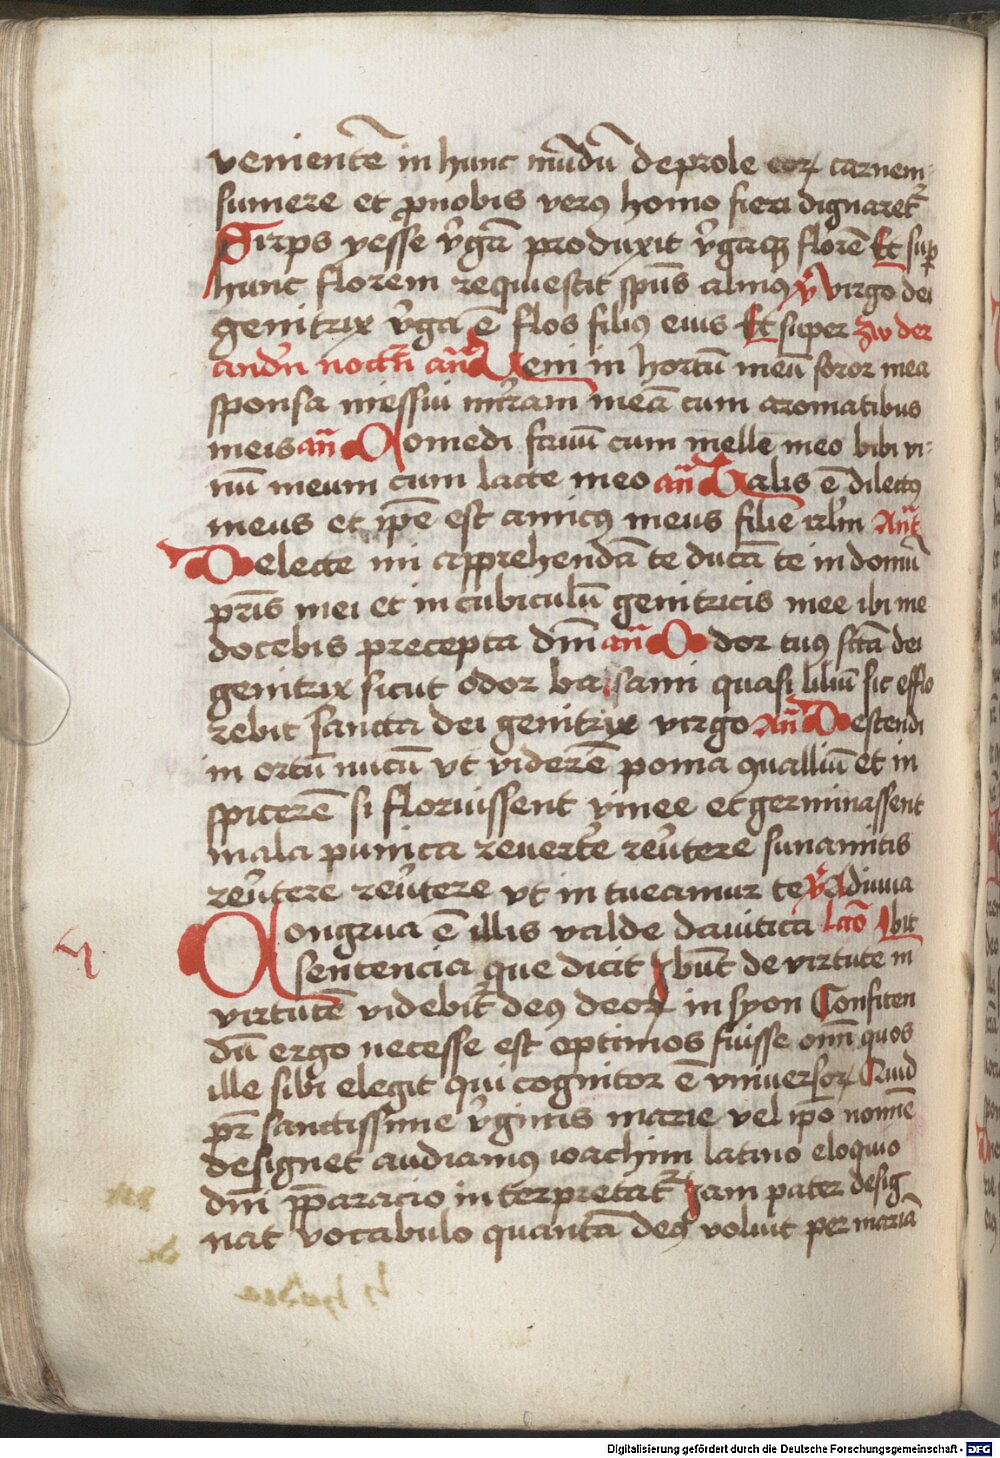 venientē in hunc mūdū de prole eoꝝ carnem
sumere et ꝓ nobis verꝰ homo fieri dignaret᷑
Stirps yesse v̓gā produxit v̓gaqꝫ florē Et suꝑ
hunc florem requiescit sp̄us almꝰ v̓ Virgo dei
genitrix v̓ga ē flos filiꝰ eius Et super Zw der
andn̄ noctn̄ an̄ Veni in hortū meū soror mea
sponsa messui mirram meā cum aromatibus
meis an̄ Comedi fauū cum melle meo bibi vi-
nū meum cum lacte meo an̄ Talis ē dilectꝰ
meus et ip̄e est amicꝰ meus filie irl̄m Ant
Delecte mi apprehendā te ducā te in domū
pr̄is mei et in cubiculū genitricis mee ibi me
docebis precepta dn̄i an̄ Odor tuꝰ sc̄tā dei
genitrix sicut odor balsami quasi liliū sic efflo
rebit sancta dei genitrix virgo An̄ Descendi
in ortū nucū vt viderē poma quallium et in
spicerē si floruissent vinee et germinassent
mala punica reuertē reu̓tere sunamitis
reu̓tere reu̓tere vt in tueamur te v̓ Adiuua
Congrua ē illis valde dauitica Lcō Ibit
sentencia que dicit Ibūt de virtute in
virtutē videbit᷑ deꝰ deoꝝ in syon Confiten
dū ergo necesse est optimos fuisse om̄i quos
ille sibi elegit qui cognitor ē vniuersoꝝ Quid
pr̄ sanctissime v̓ginis marie vel ip̄o nomīe
designet audiamꝰ ioachim latino eloquio
dn̄i p̄paracio interpretat᷑ Jam pater desig
nat vocabulo quantā deꝰ voluit per mariā
Digitalisierung gefördert durch die Deutsche Forschungsgemeinschaft - DFG